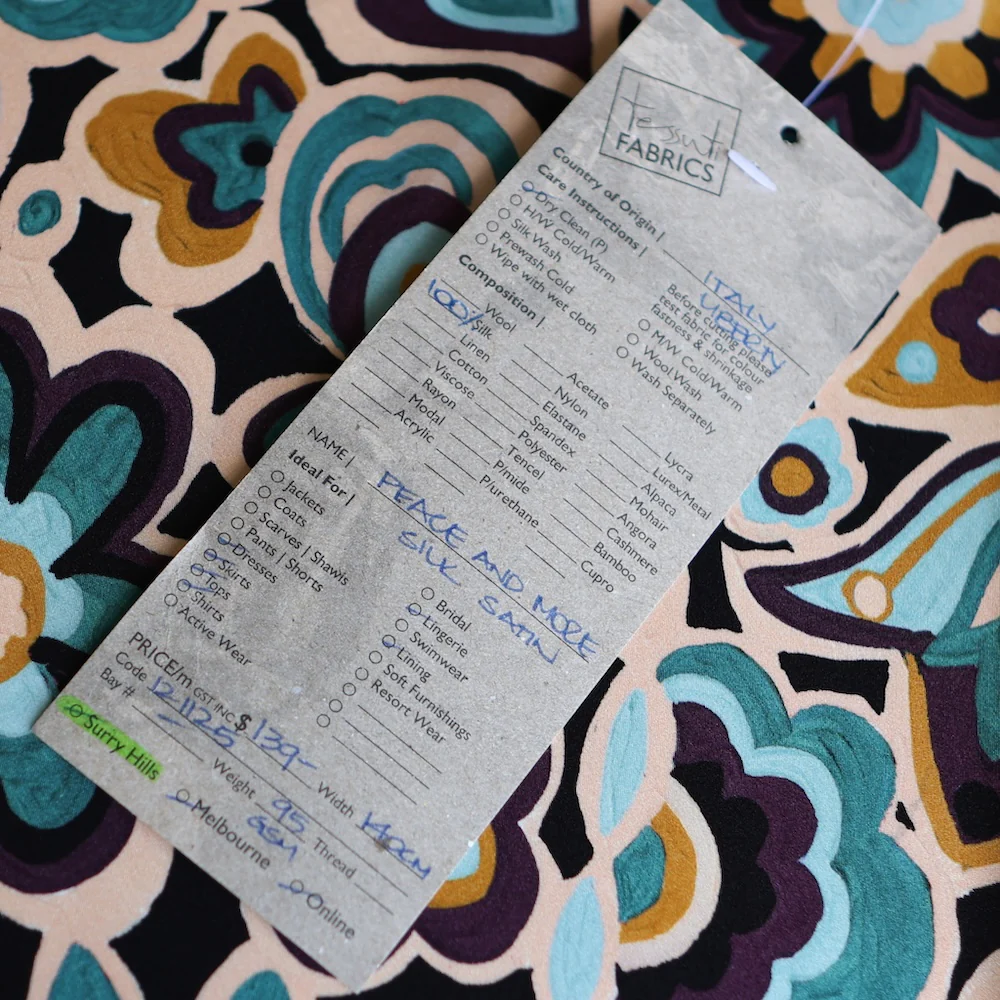 Tessuti
FABRICS
Country of Origin | ITALY
Care Instructions |
Dry Clean (P)
H/W Cold/Warm
Silk Wash
Prewash Cold
Wipe with wet cloth
Before cutting please
test fabric for colour
fastness & shrinkage
M/W Cold/Warm
Wool Wash
Wash Separately
Composition |
Wool
100% Silk
Linen
Cotton
Viscose
Rayon
Modal
Acrylic
Acetate
Nylon
Elastane
Spandex
Polyester
Tencel
P/mide
P/urethane
Lycra
Lurex/Metal
Alpaca
Mohair
Angora
Cashmere
Bamboo
Cupro
NAME | PEACE AND MORE
SILK SATIN
Ideal For |
Jackets
Coats
Scarves | Shawls
Pants | Shorts
Dresses
Skirts
Tops
Shirts
Active Wear
Bridal
Lingerie
Swimwear
Lining
Soft Furnishings
Resort Wear
PRICE/m GST INC $ 139-
Width 140CM
Code 121125
Weight 95
GSM
Thread
Bay #
Surry Hills
Melbourne
Online